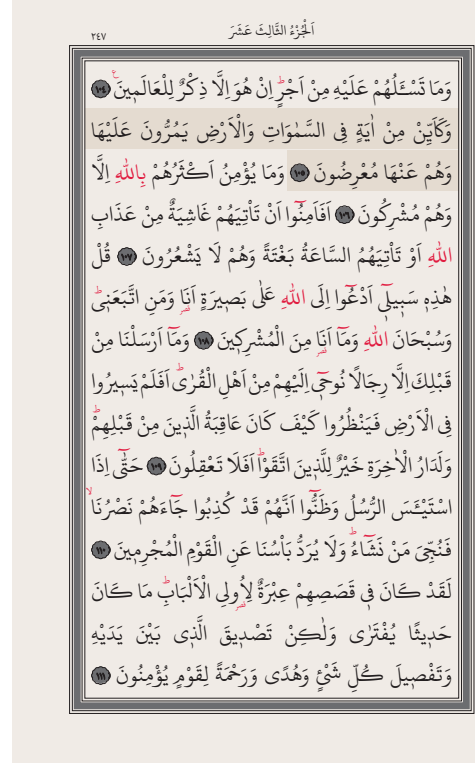 اَلْجُزْءُ الثَّالِثَ عَشَرَ
٢٤٧
وَمَا تَسْـَٔلُهُمْ عَلَيْهِ مِنْ اَجْرٍۜ اِنْ هُوَ اِلَّا ذِكْرٌ لِلْعَالَمٖينَࣖ ﴿١٠٤﴾
وَكَاَيِّنْ مِنْ اٰيَةٍ فِي السَّمٰوَاتِ وَالْاَرْضِ يَمُرُّونَ عَلَيْهَا
وَهُمْ عَنْهَا مُعْرِضُونَ ﴿١٠٥﴾ وَمَا يُؤْمِنُ اَكْثَرُهُمْ بِاللّٰهِ اِلَّا
وَهُمْ مُشْرِكُونَ ﴿١٠٦﴾ اَفَاَمِنُٓوا اَنْ تَأْتِيَهُمْ غَاشِيَةٌ مِنْ عَذَابِ
اللّٰهِ اَوْ تَأْتِيَهُمُ السَّاعَةُ بَغْتَةً وَهُمْ لَا يَشْعُرُونَ ﴿١٠٧﴾ قُلْ
هٰذِهٖ سَبٖيلٖٓي اَدْعُٓوا اِلَى اللّٰهِ عَلٰى بَصٖيرَةٍ اَنَا۬ وَمَنِ اتَّبَعَنٖيۜ
وَسُبْحَانَ اللّٰهِ وَمَٓا اَنَا۬ مِنَ الْمُشْرِكٖينَ ﴿١٠٨﴾ وَمَٓا اَرْسَلْنَا مِنْ
قَبْلِكَ اِلَّا رِجَالًا نُوحٖٓي اِلَيْهِمْ مِنْ اَهْلِ الْقُرٰىۜ اَفَلَمْ يَسٖيرُوا
فِي الْاَرْضِ فَيَنْظُرُوا كَيْفَ كَانَ عَاقِبَةُ الَّذٖينَ مِنْ قَبْلِهِمْۜ
وَلَدَارُ الْاٰخِرَةِ خَيْرٌ لِلَّذٖينَ اتَّقَوْاۜ اَفَلَا تَعْقِلُونَ ﴿١٠٩﴾ حَتّٰٓى اِذَا
اسْتَيْـَٔسَ الرُّسُلُ وَظَنُّٓوا اَنَّهُمْ قَدْ كُذِبُوا جَٓاءَهُمْ نَصْرُنَاۙ
فَنُجِّيَ مَنْ نَشَٓاءُۜ وَلَا يُرَدُّ بَأْسُنَا عَنِ الْقَوْمِ الْمُجْرِمٖينَ ﴿١١٠﴾
لَقَدْ كَانَ فٖي قَصَصِهِمْ عِبْرَةٌ لِاُو۬لِي الْاَلْبَابِۜ مَا كَانَ
حَدٖيثًا يُفْتَرٰى وَلٰكِنْ تَصْدٖيقَ الَّذٖي بَيْنَ يَدَيْهِ
وَتَفْصٖيلَ كُلِّ شَيْءٍ وَهُدًى وَرَحْمَةً لِقَوْمٍ يُؤْمِنُونَ ﴿١١١﴾